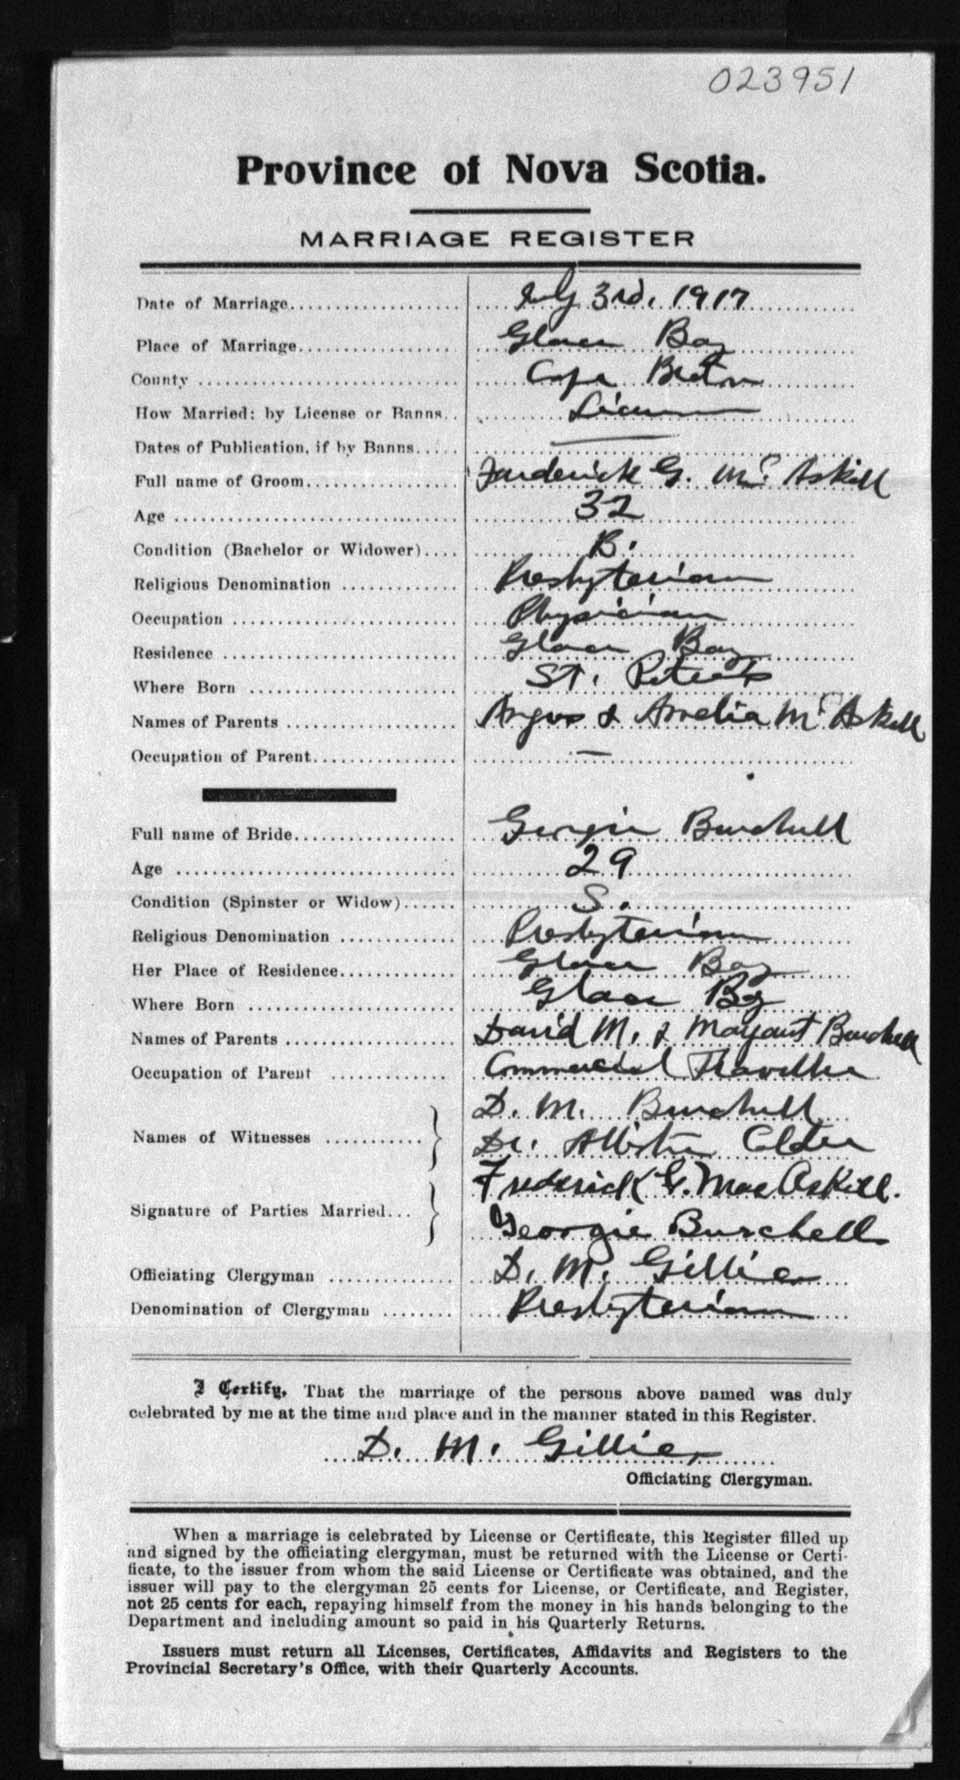 023951
Province of Nova Scotia.
MARRIAGE REGISTER
Date of Marriage July 3rd, 1917
Place of Marriage Glace Bay
County Cape Breton
How Married; by License or Banns License
Dates of Publication, if by Banns —
Full name of Groom Frederick G. McAskill
Age 32
Condition (Bachelor or Widower) B.
Religious Denomination Presbyterian
Occupation Physician
Residence Glace Bay
Where Born St. Peters
Names of Parents Angus & Amelia McAskill
Occupation of Parent —
Full name of Bride Georgie Burchell
Age 29
Condition (Spinster or Widow) S.
Religious Denomination Presbyterian
Her Place of Residence Glace Bay
Where Born Glace Bay
Names of Parents David M. & Margaret Burchell
Occupation of Parent Commercial Traveller
Names of Witnesses D. M. Burchell
Dr. Allister Calder
Signature of Parties Married Frederick G. MacAskill.
Georgie Burchell
Officiating Clergyman D. M. Gillies
Denomination of Clergyman Presbyterian
I Certify, That the marriage of the persons above named was duly
celebrated by me at the time and place and in the manner stated in this Register.
D. M. Gillies
Officiating Clergyman.
When a marriage is celebrated by License or Certificate, this Register filled up
and signed by the officiating clergyman, must be returned with the License or Certi-
ficate, to the issuer from whom the said License or Certificate was obtained, and the
issuer will pay to the clergyman 25 cents for License, or Certificate, and Register,
not 25 cents for each, repaying himself from the money in his hands belonging to the
Department and including amount so paid in his Quarterly Returns.
Issuers must return all Licenses, Certificates, Affidavits and Registers to the
Provincial Secretary's Office, with their Quarterly Accounts.